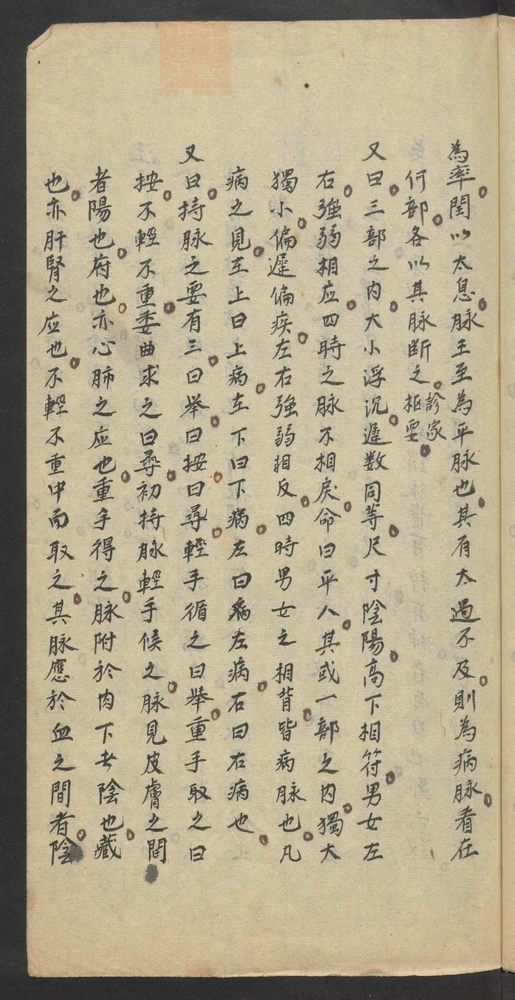 為率閏以太息脉五至為平脉也其有太過不及則為病脉看在
何部各以其脉断之診家枢要
又曰三部之内大小浮沉遲数同等尺寸陰陽高下相符男女左
右強弱相应四時之脉不相戾命曰平人其或一部之内獨大
獨小偏遲偏疾左右強弱相反四時男女之相背皆病脉也凡
病之見在上曰上病在下曰下病左曰病左病右曰右病也
又曰持脉之要有三曰举曰按曰尋輕手循之曰举重手取之曰
按不輕不重委曲求之曰尋初持脉輕手候之脉見皮膚之間
者陽也府也亦心肺之应也重手得之脉附於肉下者陰也藏
也亦肝腎之应也不輕不重中而取之其脉應於血之間者陰